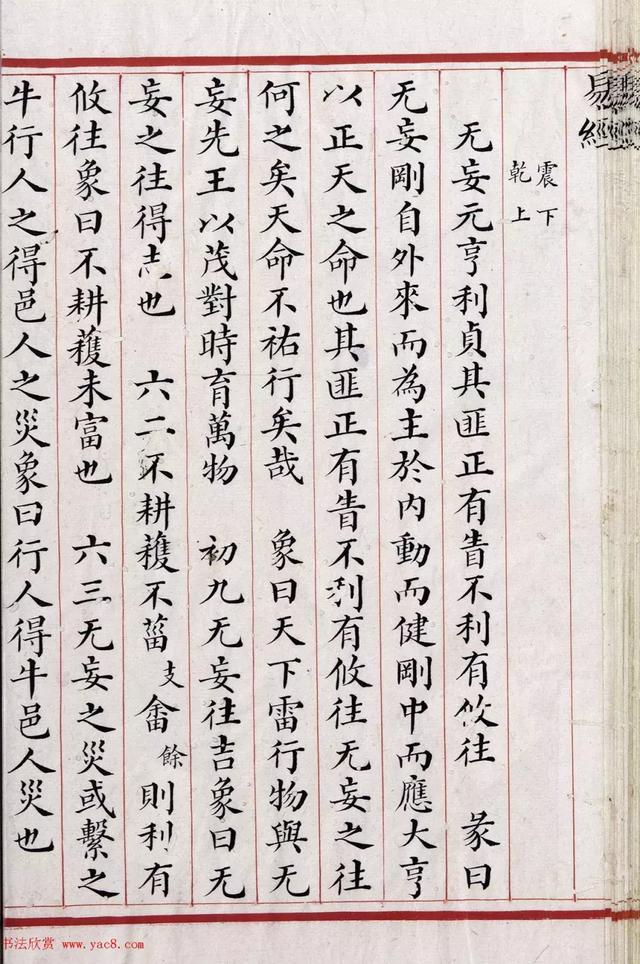 易經
震下
乾上
无妄元亨利貞其匪正有眚不利有攸往 彖曰
无妄剛自外來而為主於內動而健剛中而應大亨
以正天之命也其匪正有眚不利有攸往无妄之往
何之矣天命不祐行矣哉 象曰天下雷行物與无
妄先王以茂對時育萬物 初九无妄往吉象曰无
妄之往得志也 六二不耕穫不菑支畬餘則利有
攸往象曰不耕穫未富也 六三无妄之災或繫之
牛行人之得邑人之災象曰行人得牛邑人災也
书法欣赏 www.yac8.com